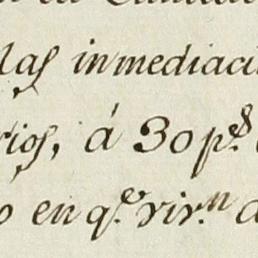 las inmediaci
rios, á 30 p.es
o en q.e vir.n